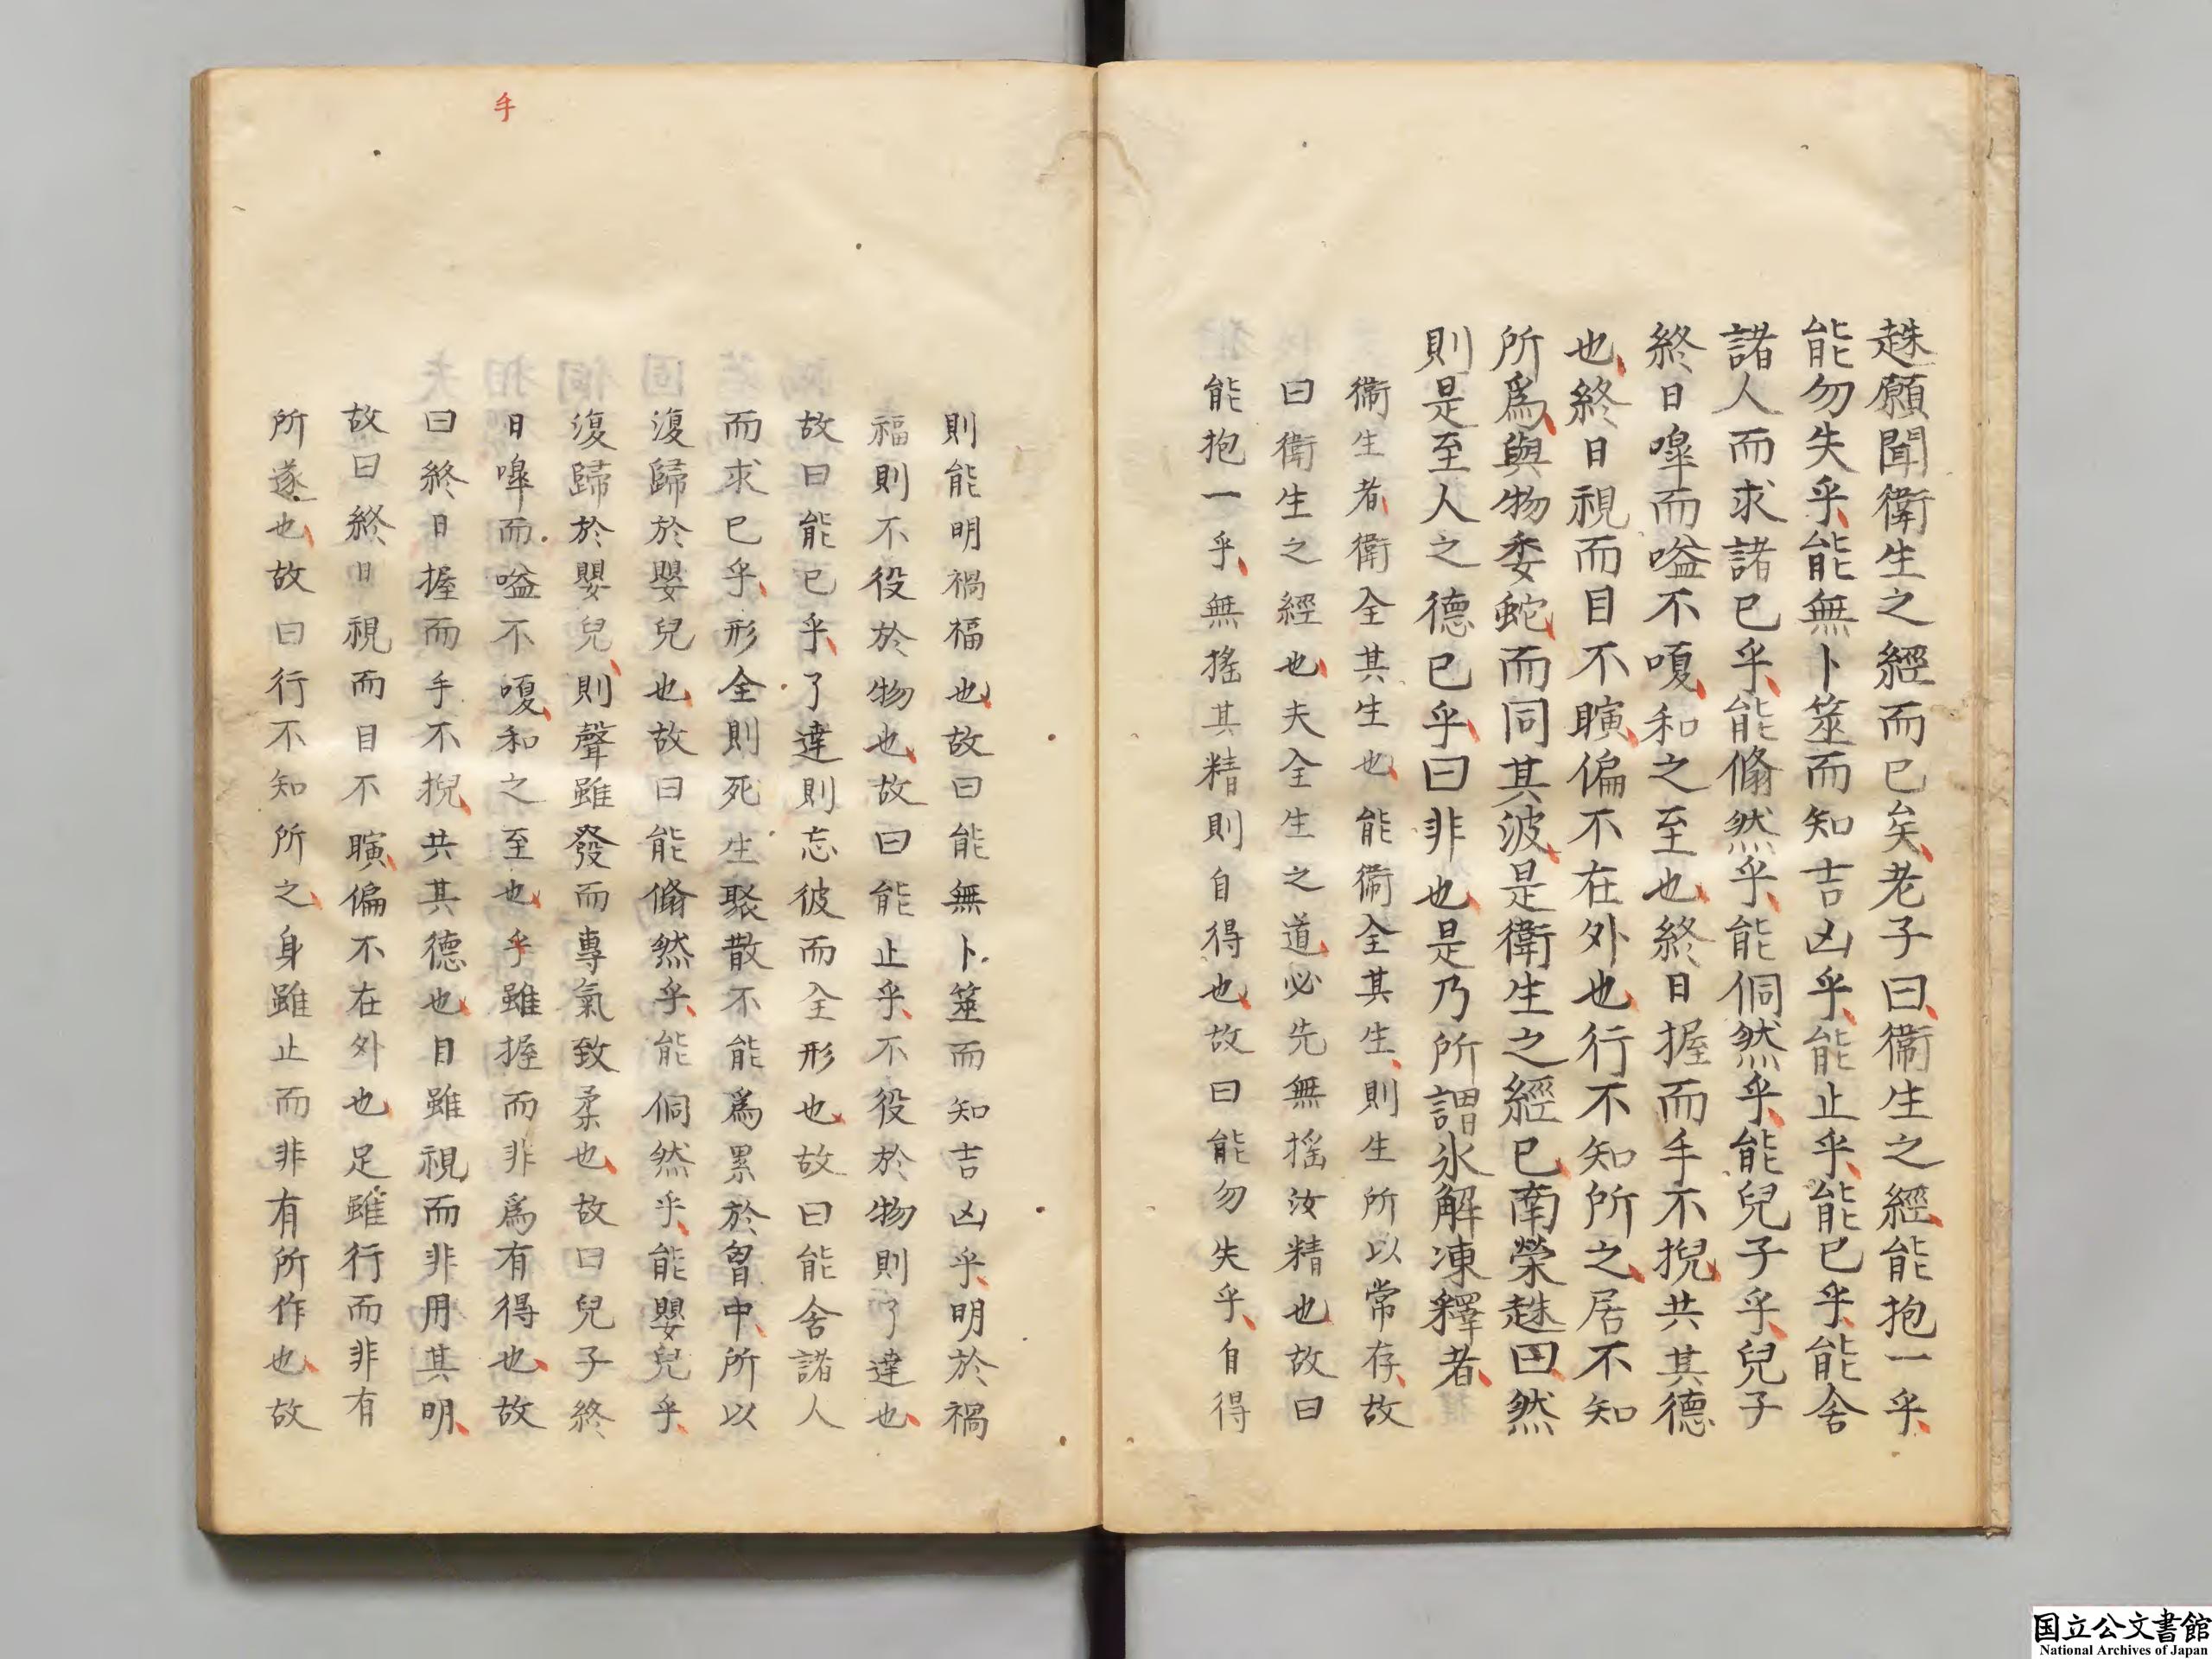 趎願聞衛生之經而已矣老子曰衛生之經能抱一乎
能勿失乎能無卜筮而知吉凶乎能止乎能已乎能舍
諸人而求諸已乎能翛然乎能侗然乎能兒子乎兒子
終日嘷而嗌不嗄和之至也終日握而手不掜共其德
也終日視而目不瞚偏不在外也行不知所之居不知
所爲與物委蛇而同其波是衛生之經已南榮趎曰然
則是至人之德已乎曰非也是乃所謂氷解凍釋者
衛生者衛全其生也能衛全其生則生所以常存故
曰衛生之經也夫全生之道必先無搖汝精也故曰
能抱一乎無搖其精則自得也故曰能勿失乎自得
則能明禍福也故曰能無卜筮而知吉凶乎明於禍
福則不役於物也故曰能止乎不役於物則了達也
故曰能已乎了達則忘彼而全形也故曰能舍諸人
而求已乎形全則死生聚散不能爲累於胷中所以
復歸於嬰兒也故曰能翛然乎能侗然乎能嬰兒乎
復歸於嬰兒則聲雖發而專氣致柔也故曰兒子終
日嘷而嗌不嗄和之至也乎雖握而非爲有得也故
曰終日握而手不掜共其德也目雖視而非用其明
故曰終日視而目不瞚偏不在外也足雖行而非有
所遂也故曰行不知所之身雖止而非有所作也故
手
国立公文書館
National Archives of Japan